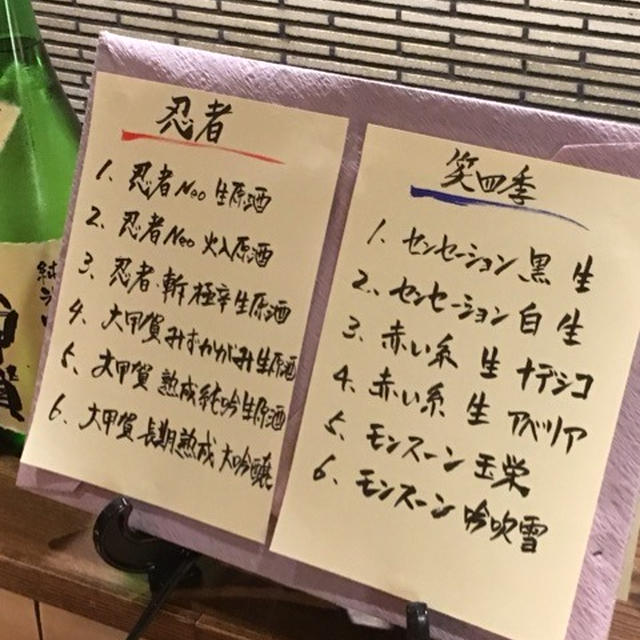 忍者
1. 忍者Neo 生原酒
2. 忍者Neo 火入原酒
3. 忍者 斬 極辛生原酒
4. 大甲賀みずかがみ生原酒
5. 大甲賀 熟成純吟生原酒
6. 大甲賀 長期熟成 大吟醸
笑四季
1. センセーション 黒 生
2. センセーション 白 生
3. 赤い糸 生 ナデシコ
4. 赤い糸 生 アベリア
5. モンスーン 玉栄
6. モンスーン 吟吹雪